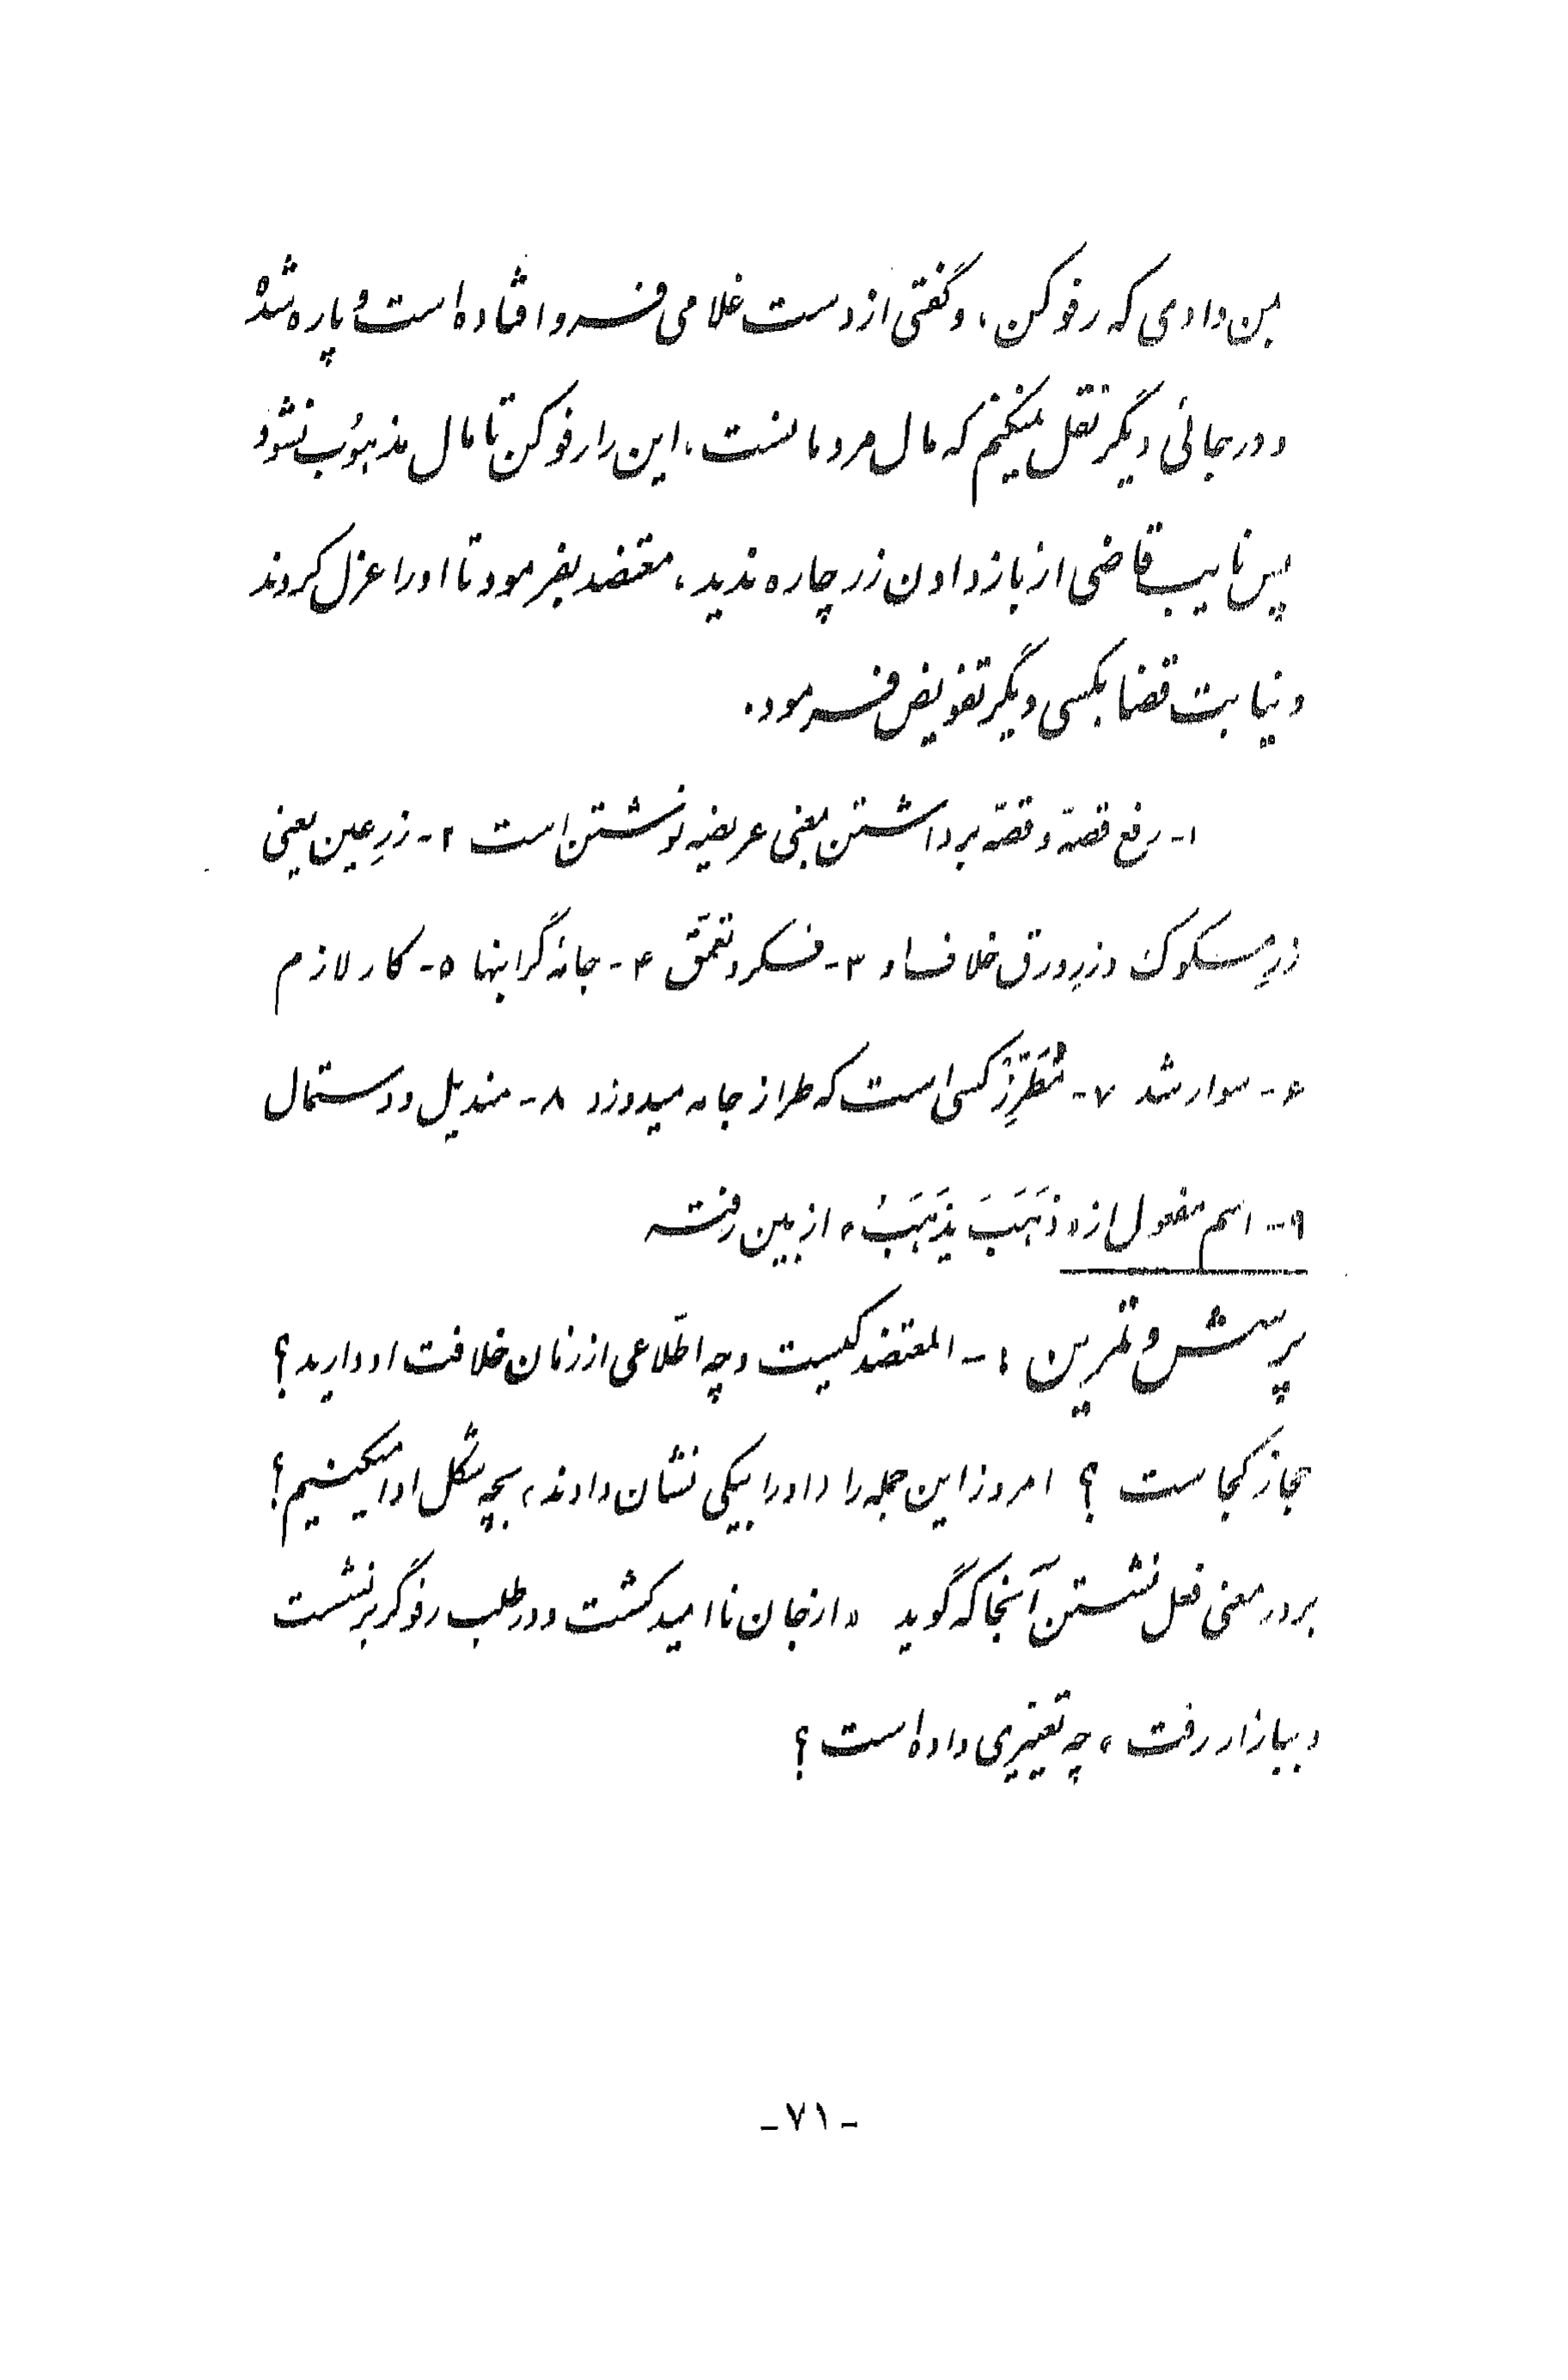 بمن دادی که رفو کن ، و گفتی از دست غلامی فرو افتاده است و پاره شده
و در جائی دیگر نقل میکنم که مال مردمانست ، این را رفو کن تا مال مذهوب نشود
پس نایب قاضی از باز دادن زر چاره ندید ، معتضد بفرمود تا او را عزل کردند
و نیابت قضا بکسی دیگر تفویض فرمود .
۱- رفع قصه و قصّه برداشتن بمعنی عریضه نوشتن است ۲- زرِ عین یعنی
زرِ مسکوک و زرِ ورق خلاف او ۳- فکر و تعمّق ۴- جامهٔ گرانبها ۵- کار لازم
۶- سوار شد ۷- مُطَرِّز کسی است که طراز جامه میدوزد ۸- مندیل و دستمال
۹- اسم مفعول از « ذَهَبَ یَذهَبُ » از بین رفته
پرسش و تمرین : ۱- المعتضد کیست و چه اطّلاعی از زمان خلافت او دارید ؟
حجاز کجاست ؟ امروز این جمله را « او را بیکی نشان دادند » بچه شکل ادا میکنیم ؟
بر در معنی فعل نشستن آنجا که گوید « از جان ناامید گشت و در طلب رفوگر بر نشست
و ببازار رفت » چه تغییری داده است ؟
- ۷۱ -